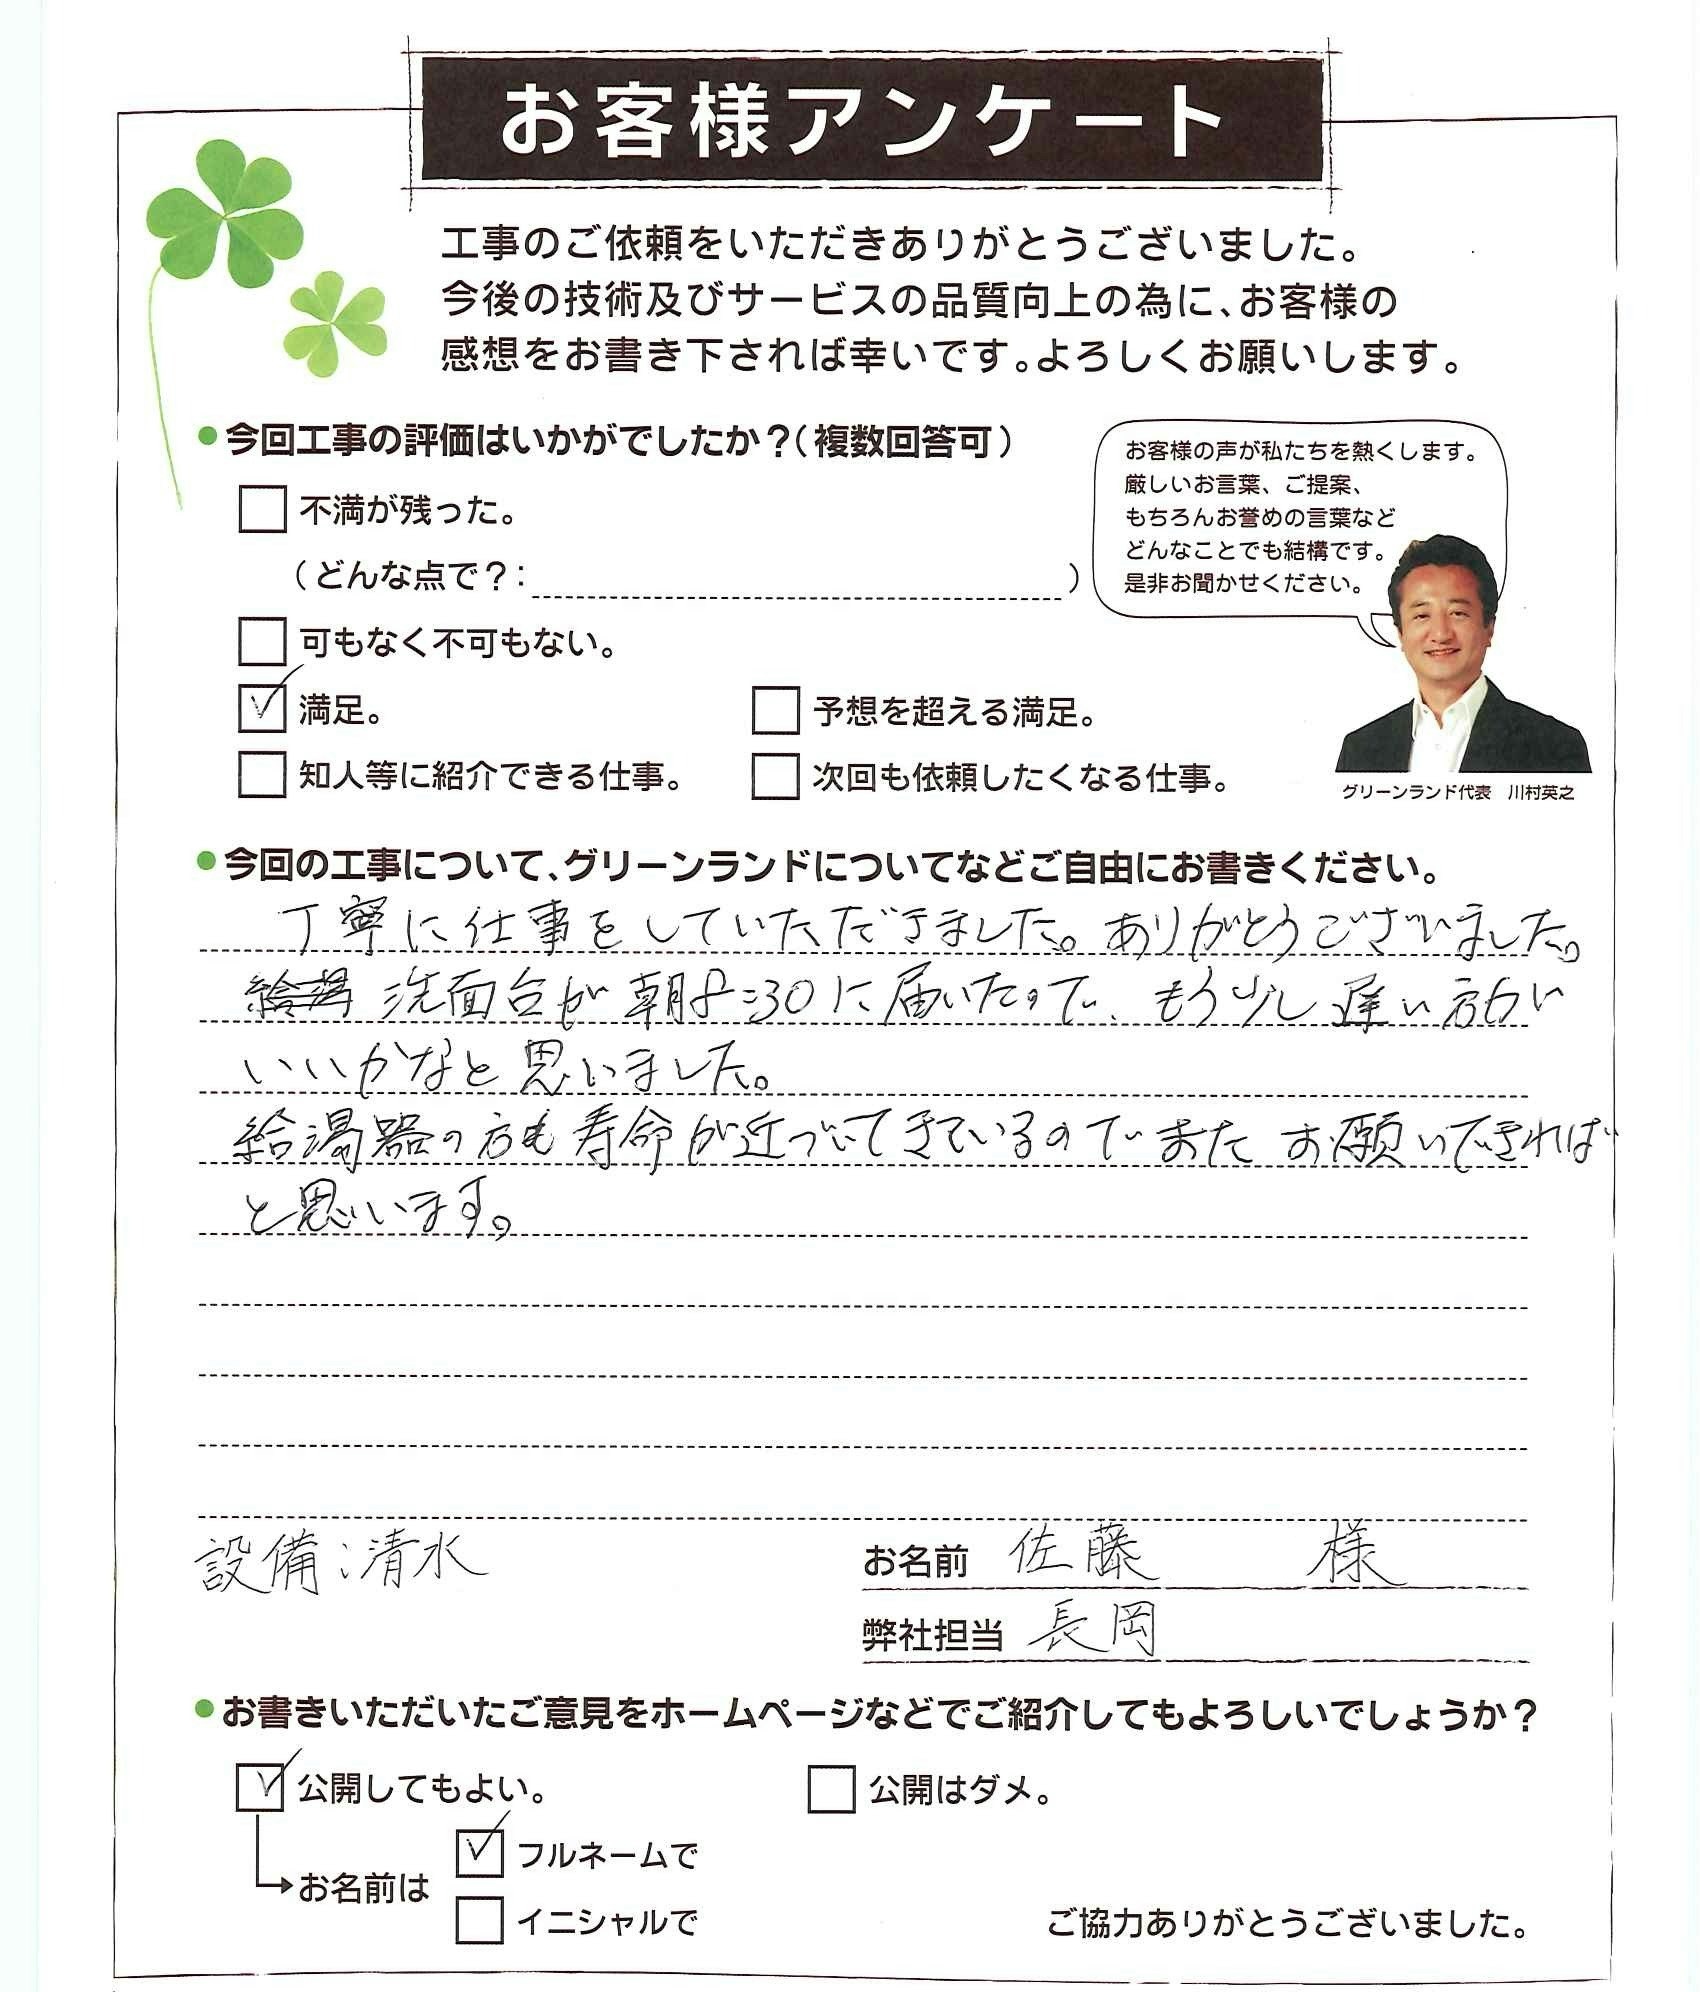 お客様アンケート
工事のご依頼をいただきありがとうございました。
今後の技術及びサービスの品質向上の為に、お客様の
感想をお書き下されば幸いです。よろしくお願いします。
●今回工事の評価はいかがでしたか？（複数回答可）
不満が残った。
（どんな点で？： ）
可もなく不可もない。
満足。
予想を超える満足。
知人等に紹介できる仕事。
次回も依頼したくなる仕事。
お客様の声が私たちを熱くします。
厳しいお言葉、ご提案、
もちろんお誉めの言葉など
どんなことでも結構です。
是非お聞かせください。
グリーンランド代表　川村英之
●今回の工事について、グリーンランドについてなどご自由にお書きください。
丁寧に仕事をしていただきました。ありがとうございました。
給湯 洗面台が朝8:30に届いたので、もう少し遅い方が
いいかなと思いました。
給湯器の方も寿命が近づいてきているのでまたお願いできれば
と思います。
設備：清水
お名前 佐藤 様
弊社担当 長岡
●お書きいただいたご意見をホームページなどでご紹介してもよろしいでしょうか？
公開してもよい。
公開はダメ。
お名前は
フルネームで
イニシャルで
ご協力ありがとうございました。